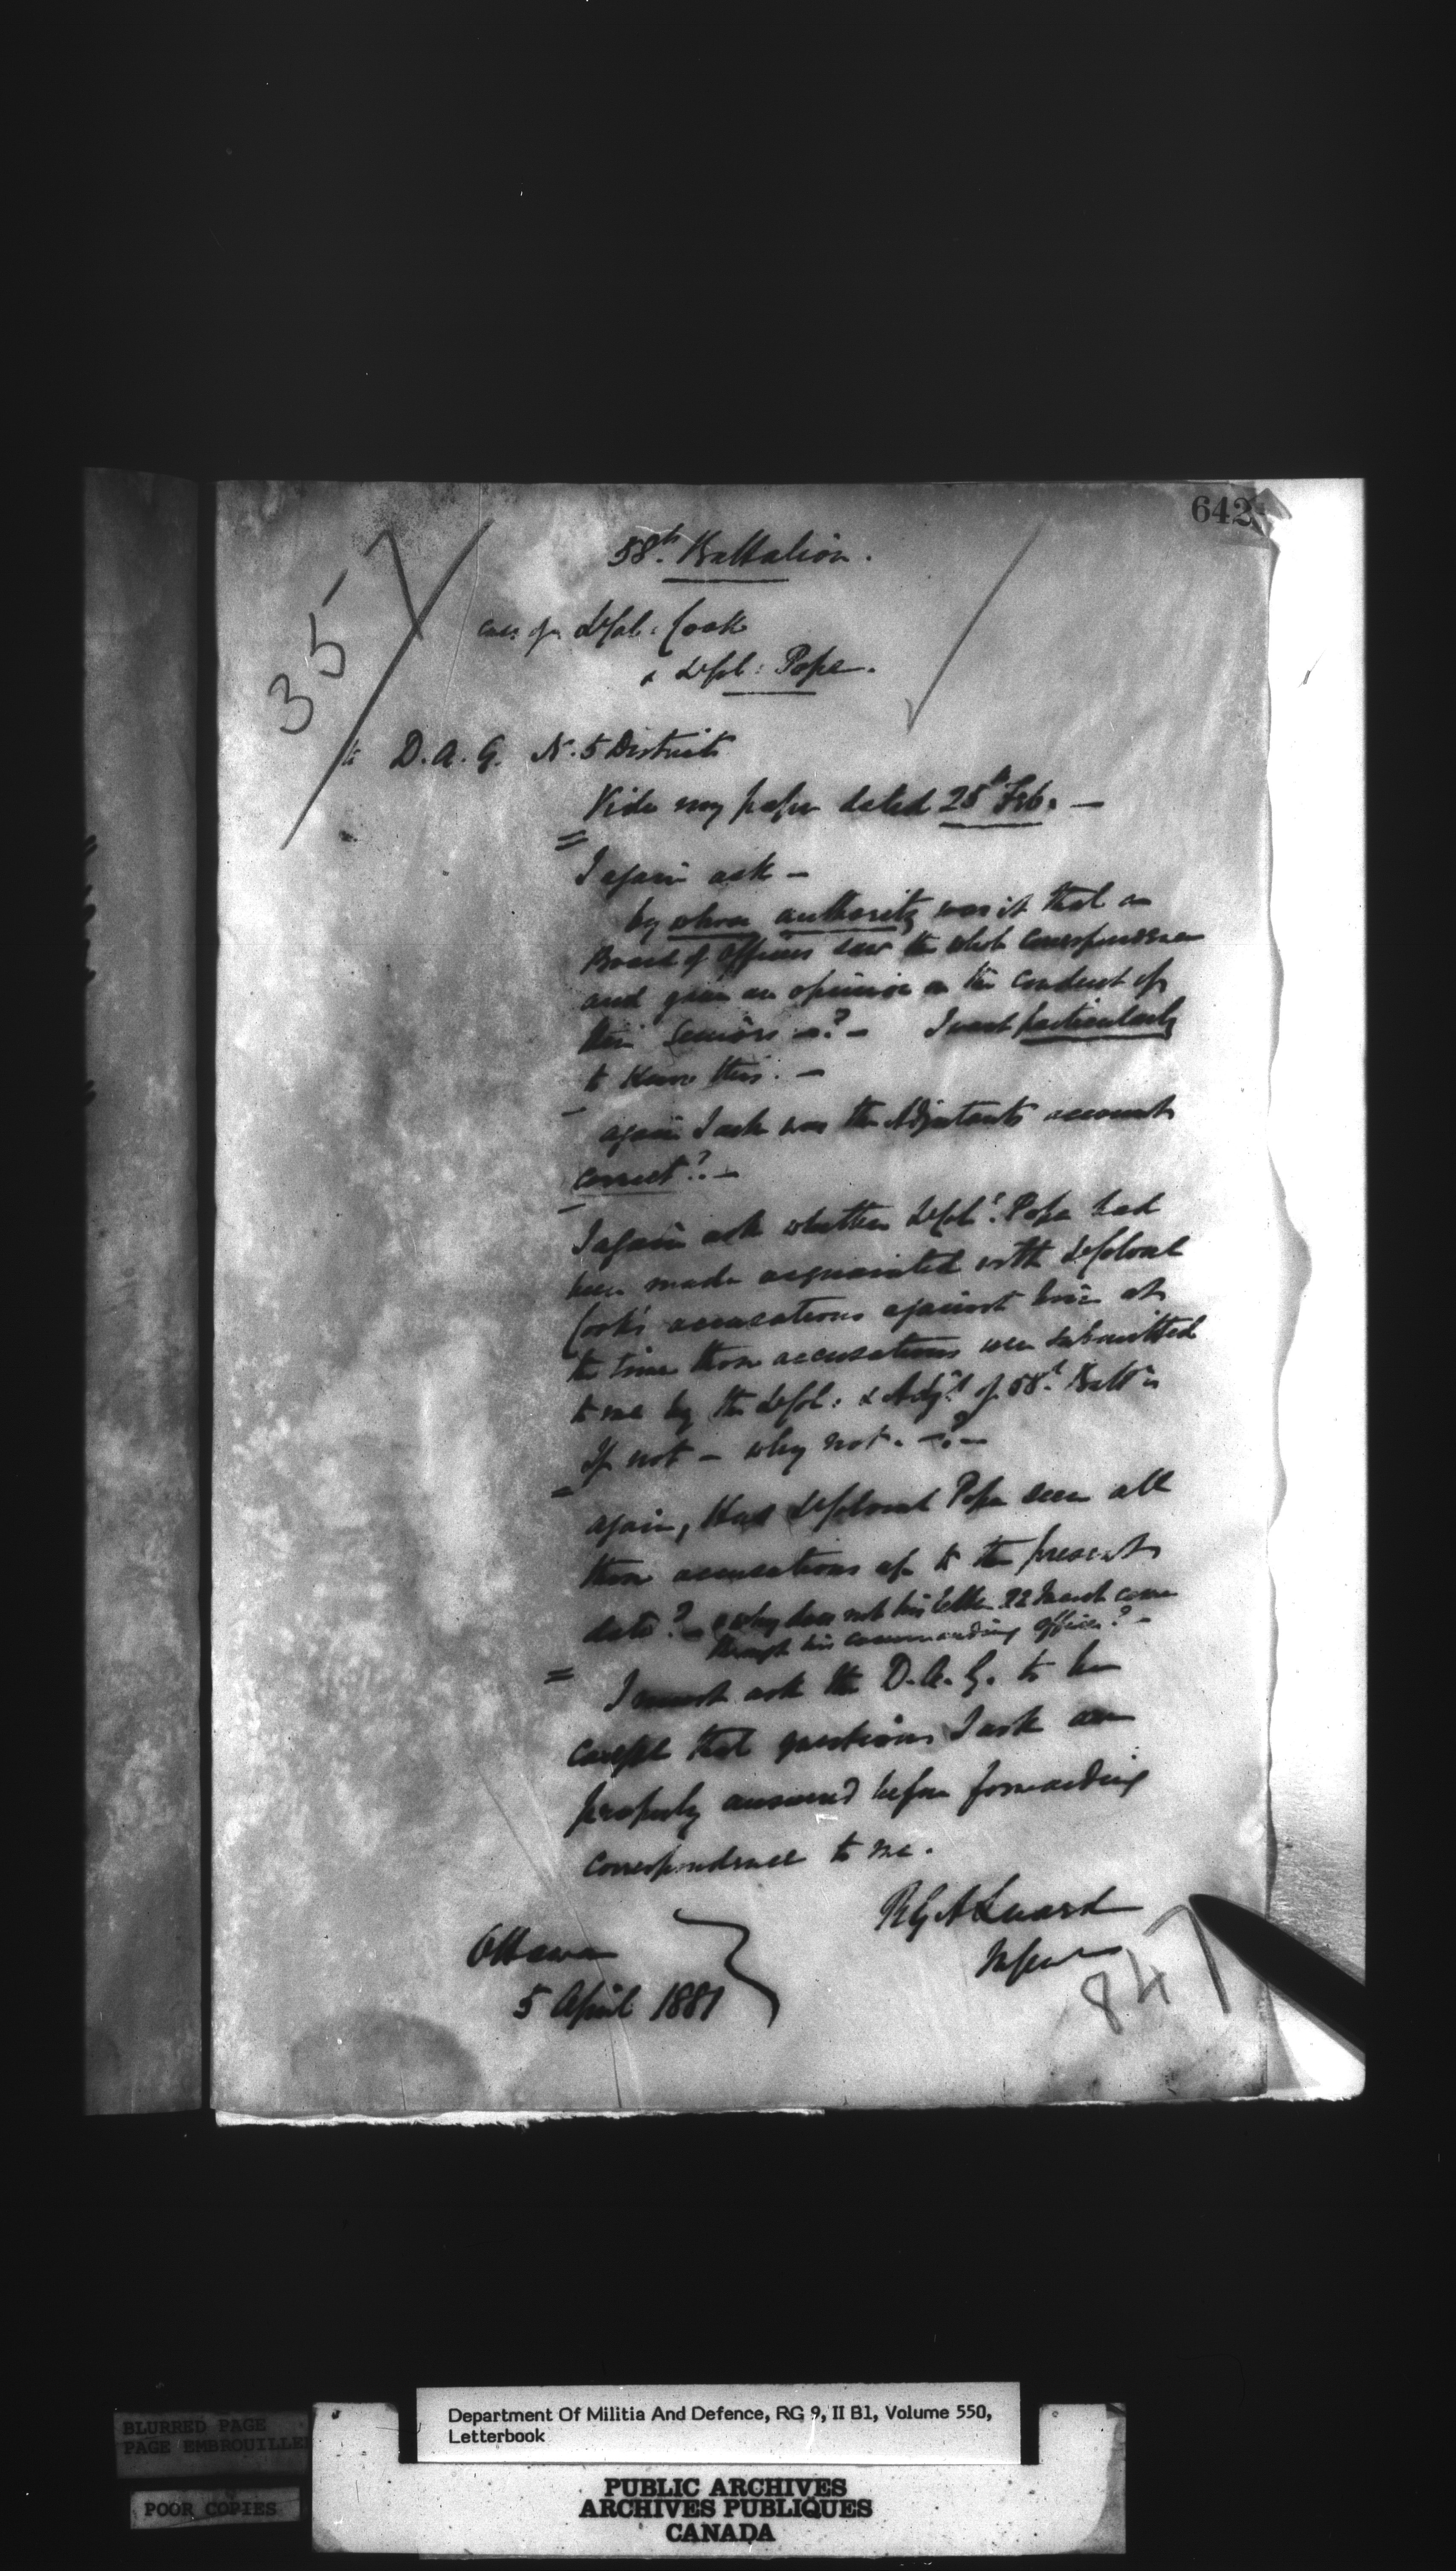 642
357
58th. Battalion.
case of Lt Col: Cook
& Lt Col: Pope.
to D.A.G. No. 5 District
Vide my paper dated 25th Feb. —
= I again ask —
by whose authority was it that a
Board of Officers saw the whole correspondence
and gave an opinion on the conduct of
their Seniors —?— I want particularly
to know this. —
again I ask was the Adjutants account
correct? —
I again ask whether Lt Col: Pope had
been made acquainted with Lt Colonel
Cook's accusations against him at
the time those accusations were submitted
to me by the Lt Col: & Adjt. of 58th Battn
If not — why not. —?—
again, Has Lt Colonel Pope seen all
these accusations up to the present
date? — & why does not his letter 22 March come
through his commanding officer? —
= I must ask the D.A.G. to be
careful that questions I ask are
properly answered before forwarding
correspondence to me.
RGA Luard
Ottawa
5 April 1881
847
BLURRED PAGE
PAGE EMBROUILLEE
POOR COPIES
Department Of Militia And Defence, RG 9, II B1, Volume 550,
Letterbook
PUBLIC ARCHIVES
ARCHIVES PUBLIQUES
CANADA